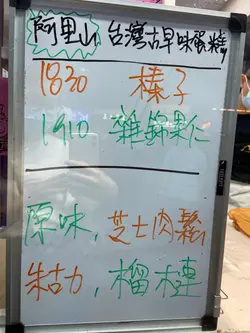 阿里山 台灣古早味蛋糕
1830 榛子
1910 雜錦果仁
原味, 芝士肉鬆
朱古力, 榴槤